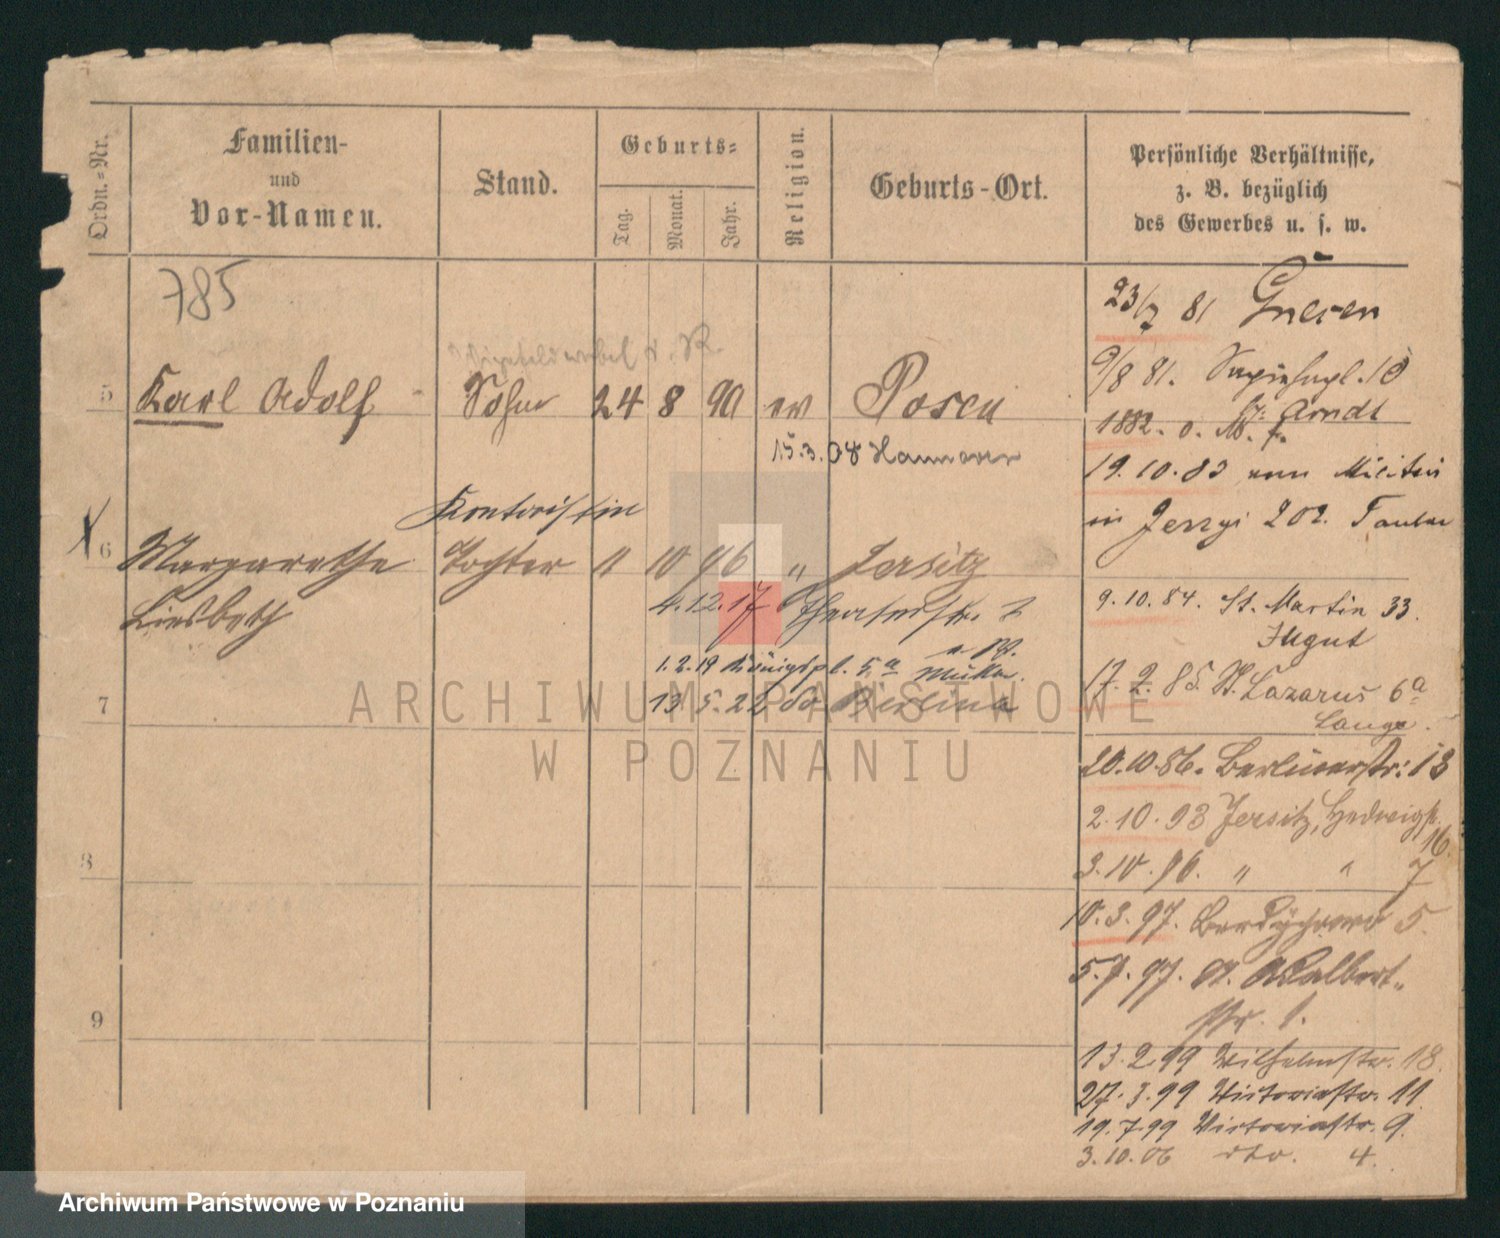 Ordn.-Nr.
Familien-
und
Vor-Namen.
Stand.
Geburts-
Tag.
Monat.
Jahr.
Religion.
Geburts-Ort.
Persönliche Verhältnisse,
z. B. bezüglich
des Gewerbes u. s. w.
785
5 Karl Adolf Sohn 24 8 90 ev Posen
15.3.08 Hannover
Kontoristin
6 Margarethe Tochter 11 10 96 " Jersitz
Liesbeth
4.12.17
1.2.19 Königspl. 5a
13 5. 22 Berlina
7
8
9
23/7 81 Gnesen
9/8 81.
Arndt
1882. o. M.
19.10.83 vom Militär
in Jerzyi 202.
9.10.84. St. Martin 33.
17.2.85. St. Lazarus 6a
Lange.
20.10.86. Berlinerstr: 13
2.10.93 Jersitz, Hedwigst.
16.
3.10.96. " " 7
10.3.97. Berdychowo 5.
5.7.97. St. Adalbert-
str. 1.
13.2.99 Wilhelmstr. 18.
27.3.99 Victoriastr. 11
19.7.99 Victoriastr. 9.
3.10.06 dto. 4.
ARCHIWUM PAŃSTWOWE
W POZNANIU
Archiwum Państwowe w Poznaniu